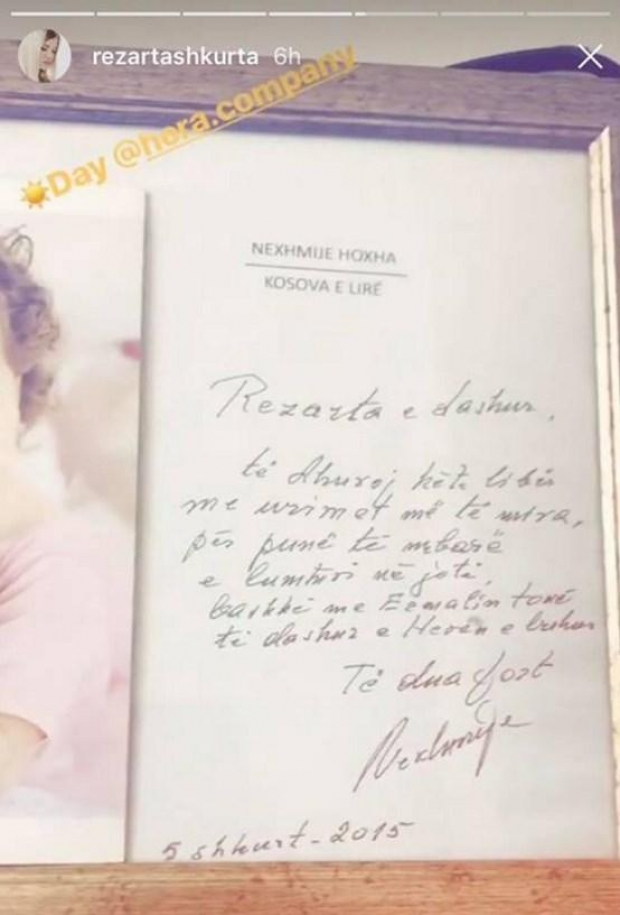 rezartashkurta 6h
☀Day @hora.company
NEXHMIJE HOXHA
KOSOVA E LIRË
Rezarta e dashur,
të dhuroj këtë libër
me urimet më të mira,
për punë të mbarë
e lumturi në jetë,
bashkë me Ermalin tonë
të dashur e Herën e bukur
Të dua fort
Nexhmije
5 shkurt - 2015